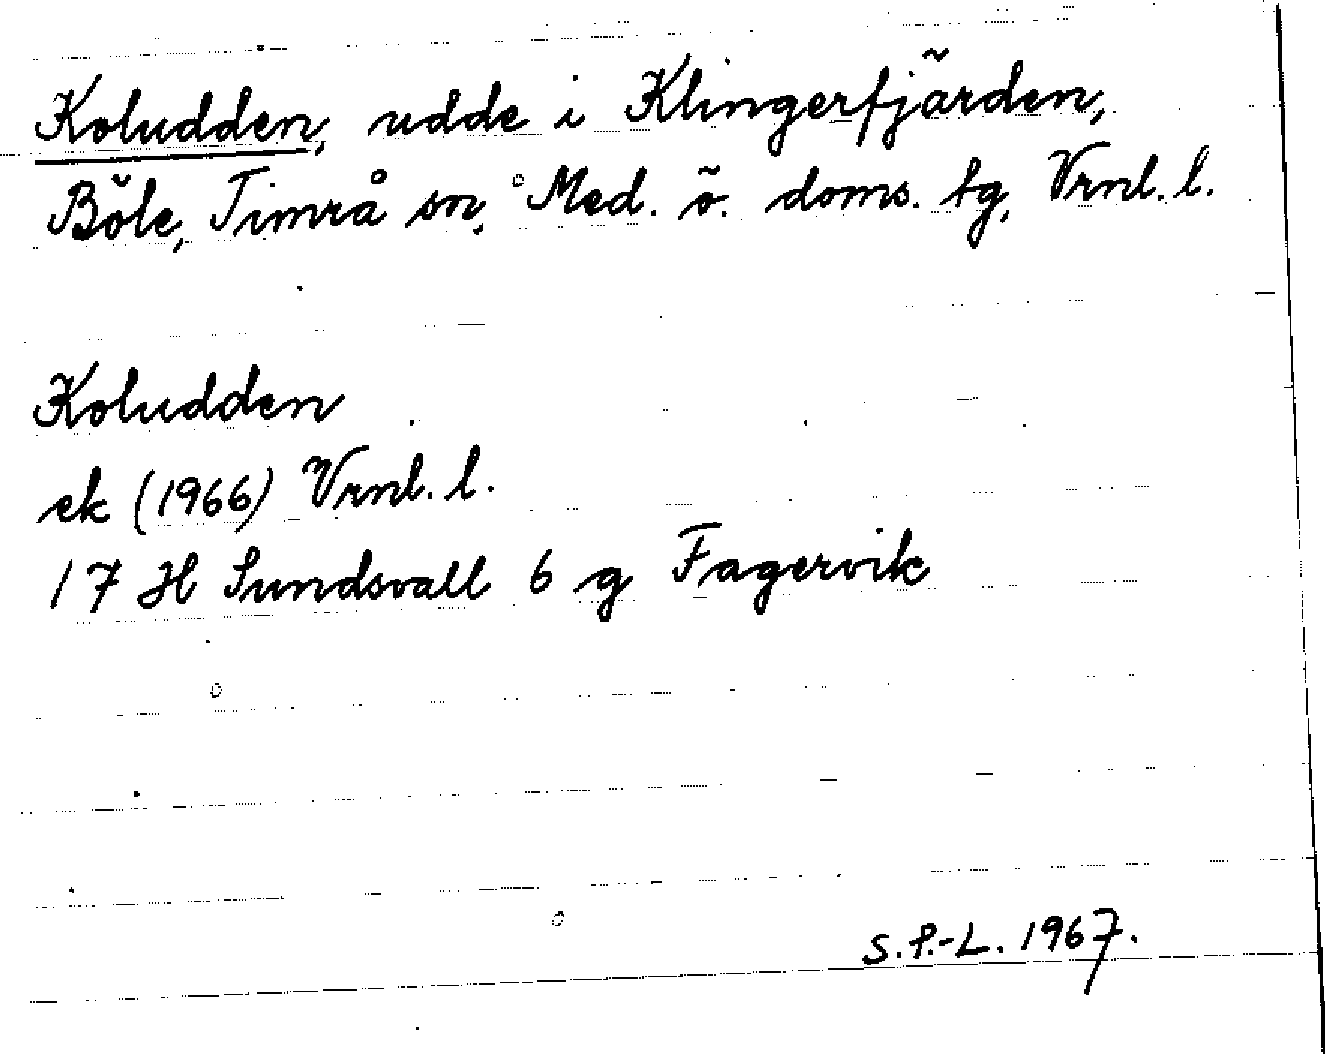 Koludden, udde i Klingerfjärden,
Böle, Timrå sn, Med. ö. doms. tg, Vrnl. l.
Koludden
ek (1966) Vrnl. l.
17 H Sundsvall 6 g Fagervik
S.P.-L. 1967.